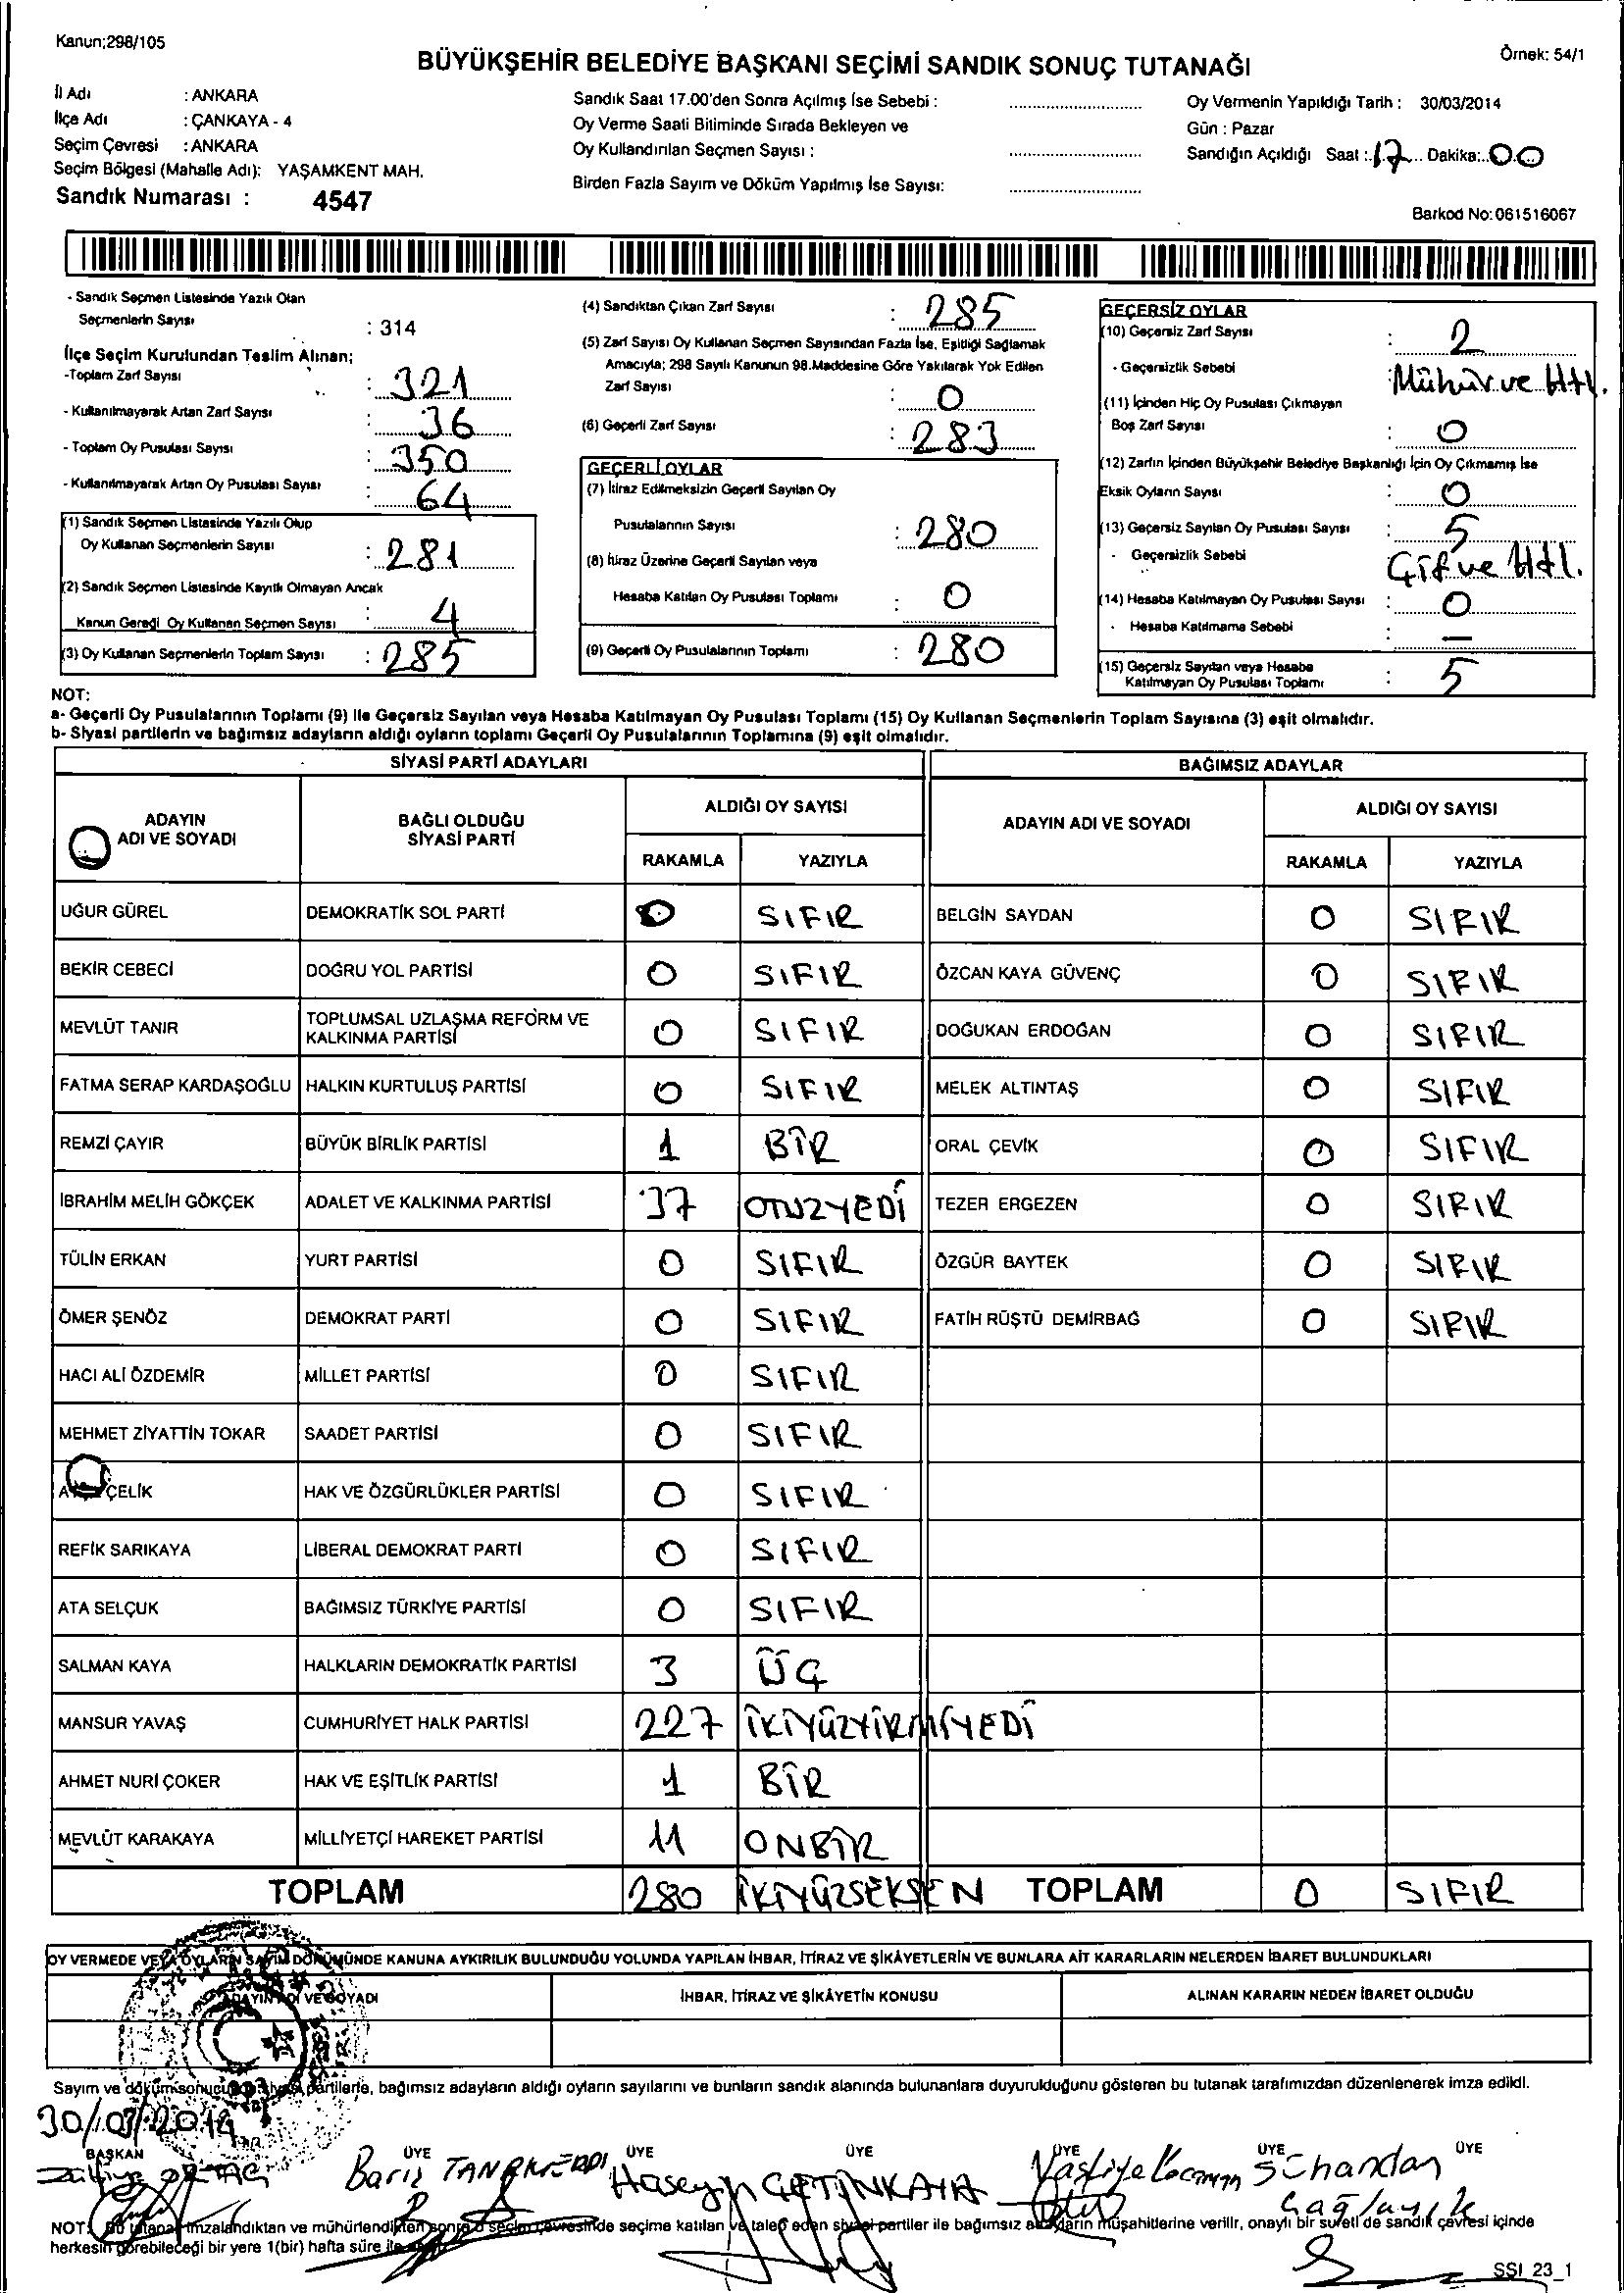 Kanun;298/105
Örnek: 54/1
BÜYÜKŞEHİR BELEDİYE BAŞKANI SEÇİMİ SANDIK SONUÇ TUTANAĞI
İl Adı : ANKARA
İlçe Adı : ÇANKAYA - 4
Seçim Çevresi : ANKARA
Seçim Bölgesi (Mahalle Adı): YAŞAMKENT MAH.
Sandık Numarası : 4547
Sandık Saat 17.00'den Sonra Açılmış İse Sebebi :
Oy Verme Saati Bitiminde Sırada Bekleyen ve
Oy Kullandırılan Seçmen Sayısı :
Birden Fazla Sayım ve Döküm Yapılmış İse Sayısı:
Oy Vermenin Yapıldığı Tarih : 30/03/2014
Gün : Pazar
Sandığın Açıldığı Saat : 17 Dakika: 00
Barkod No:061516067
- Sandık Seçmen Listesinde Yazılı Olan
Seçmenlerin Sayısı : 314
İlçe Seçim Kurulundan Teslim Alınan;
-Toplam Zarf Sayısı : 321
- Kullanılmayarak Artan Zarf Sayısı : 36
- Toplam Oy Pusulası Sayısı : 350
- Kullanılmayarak Artan Oy Pusulası Sayısı : 64
(1) Sandık Seçmen Listesinde Yazılı Olup
Oy Kullanan Seçmenlerin Sayısı : 281
(2) Sandık Seçmen Listesinde Kayıtlı Olmayan Ancak
Kanun Gereği Oy Kullanan Seçmen Sayısı : 4
(3) Oy Kullanan Seçmenlerin Toplam Sayısı : 285
(4) Sandıktan Çıkan Zarf Sayısı : 285
(5) Zarf Sayısı Oy Kullanan Seçmen Sayısından Fazla İse, Eşitliği Sağlamak
Amacıyla; 298 Sayılı Kanunun 98.Maddesine Göre Yakılarak Yok Edilen
Zarf Sayısı : 0
(6) Geçerli Zarf Sayısı : 283
GEÇERLİ OYLAR
(7) İtiraz Edilmeksizin Geçerli Sayılan Oy
Pusulalarının Sayısı : 280
(8) İtiraz Üzerine Geçerli Sayılan veya
Hesaba Katılan Oy Pusulası Toplamı : 0
(9) Geçerli Oy Pusulalarının Toplamı : 280
GEÇERSİZ OYLAR
(10) Geçersiz Zarf Sayısı : 2
- Geçersizlik Sebebi : Mühür ve Htl.
(11) İçinden Hiç Oy Pusulası Çıkmayan
Boş Zarf Sayısı : 0
(12) Zarfın İçinden Büyükşehir Belediye Başkanlığı İçin Oy Çıkmamış İse
Eksik Oyların Sayısı : 0
(13) Geçersiz Sayılan Oy Pusulası Sayısı : 5
- Geçersizlik Sebebi Çif ve Htl.
(14) Hesaba Katılmayan Oy Pusulası Sayısı : 0
- Hesaba Katılmama Sebebi : —
(15) Geçersiz Sayılan veya Hesaba
Katılmayan Oy Pusulası Toplamı : 5
NOT:
a- Geçerli Oy Pusulalarının Toplamı (9) ile Geçersiz Sayılan veya Hesaba Katılmayan Oy Pusulası Toplamı (15) Oy Kullanan Seçmenlerin Toplam Sayısına (3) eşit olmalıdır.
b- Siyasi partilerin ve bağımsız adayların aldığı oyların toplamı Geçerli Oy Pusulalarının Toplamına (9) eşit olmalıdır.
SİYASİ PARTİ ADAYLARI BAĞIMSIZ ADAYLAR
ADAYIN
ADI VE SOYADI
BAĞLI OLDUĞU
SİYASİ PARTİ
ALDIĞI OY SAYISI
RAKAMLA YAZIYLA
ADAYIN ADI VE SOYADI
ALDIĞI OY SAYISI
RAKAMLA YAZIYLA
UĞUR GÜREL DEMOKRATİK SOL PARTİ 0 SIFIR BELGİN SAYDAN 0 SIFIR
BEKİR CEBECİ DOĞRU YOL PARTİSİ 0 SIFIR ÖZCAN KAYA GÜVENÇ 0 SIFIR
MEVLÜT TANIR TOPLUMSAL UZLAŞMA REFORM VE
KALKINMA PARTİSİ 0 SIFIR DOĞUKAN ERDOĞAN 0 SIFIR
FATMA SERAP KARDAŞOĞLU HALKIN KURTULUŞ PARTİSİ 0 SIFIR MELEK ALTINTAŞ 0 SIFIR
REMZİ ÇAYIR BÜYÜK BİRLİK PARTİSİ 1 BİR ORAL ÇEVİK 0 SIFIR
İBRAHİM MELİH GÖKÇEK ADALET VE KALKINMA PARTİSİ 37 OTUZYEDİ TEZER ERGEZEN 0 SIFIR
TÜLİN ERKAN YURT PARTİSİ 0 SIFIR ÖZGÜR BAYTEK 0 SIFIR
ÖMER ŞENÖZ DEMOKRAT PARTİ 0 SIFIR FATİH RÜŞTÜ DEMİRBAĞ 0 SIFIR
HACI ALİ ÖZDEMİR MİLLET PARTİSİ 0 SIFIR
MEHMET ZİYATTİN TOKAR SAADET PARTİSİ 0 SIFIR
ÇELİK HAK VE ÖZGÜRLÜKLER PARTİSİ 0 SIFIR
REFİK SARIKAYA LİBERAL DEMOKRAT PARTİ 0 SIFIR
ATA SELÇUK BAĞIMSIZ TÜRKİYE PARTİSİ 0 SIFIR
SALMAN KAYA HALKLARIN DEMOKRATİK PARTİSİ 3 ÜÇ
MANSUR YAVAŞ CUMHURİYET HALK PARTİSİ 227 İKİYÜZYİRMİYEDİ
AHMET NURİ ÇOKER HAK VE EŞİTLİK PARTİSİ 1 BİR
MEVLÜT KARAKAYA MİLLİYETÇİ HAREKET PARTİSİ 11 ONBİR
TOPLAM 280 İKİYÜZSEKSEN TOPLAM 0 SIFIR
OY VERMEDE VEYA OYLARIN SAYIM DÖKÜMÜNDE KANUNA AYKIRILIK BULUNDUĞU YOLUNDA YAPILAN İHBAR, İTİRAZ VE ŞİKÂYETLERİN VE BUNLARA AİT KARARLARIN NELERDEN İBARET BULUNDUKLARI
ADAYIN ADI VE SOYADI İHBAR, İTİRAZ VE ŞİKÂYETİN KONUSU ALINAN KARARIN NEDEN İBARET OLDUĞU
Sayım ve döküm sonucunda siyasi partilerle, bağımsız adayların aldığı oyların sayılarını ve bunların sandık alanında bulunanlara duyurulduğunu gösteren bu tutanak tarafımızdan düzenlenerek imza edildi.
30/03/2014
BAŞKAN ÜYE ÜYE ÜYE ÜYE ÜYE ÜYE
Zülfiye ORTAÇ Barış Hüseyin ÇETİNKAYA
NOT: Bu tutanak imzalandıktan ve mühürlendikten sonra o seçim çevresinde seçime katılan ve talep eden siyasi partiler ile bağımsız adayların müşahitlerine verilir, onaylı bir sureti de sandık çevresi içinde
herkesin görebileceği bir yere 1(bir) hafta süre ile
SSI_23_1